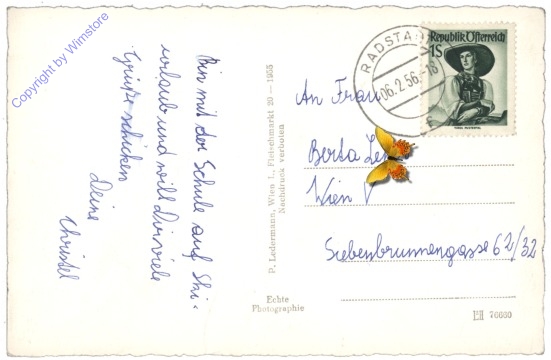 Copyright by Wimstore
Bin mit der Schule auf Ski-
urlaub und will Dir viele
Grüße schicken
Deine
Christel
P. Ledermann, Wien I., Fleischmarkt 20 — 1955
Nachdruck verboten
Echte
Photographie
RADSTADT
06.2.56.-18
Republik Österreich
1S
An Frau
Berta
Wien V
Siebenbrunnengasse 62/32
76660